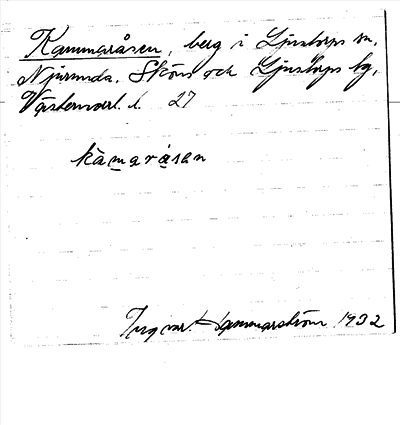 Kammaråsen, berg i Ljustorps sn.
Njurunda, Sköns och Ljustorps tg,
Västernorrl. l. 27
kàmaråsen
Ingvar Hammarström 1932